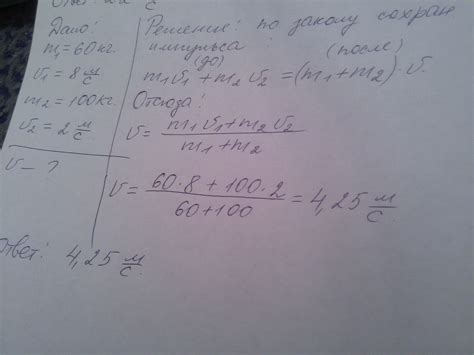 Ответ 2,2 с
Дано:
m₁ = 60 кг.
v₁ = 8 м/с
m₂ = 100 кг.
v₂ = 2 м/с
v — ?
Решение: по закону сохран
импульса:
(до) (после)
m₁v₁ + m₂v₂ = (m₁ + m₂) · v.
Отсюда:
v = (m₁v₁ + m₂v₂) / (m₁ + m₂)
v = (60·8 + 100·2) / (60 + 100) = 4,25 м/с
Ответ: 4,25 м/с.